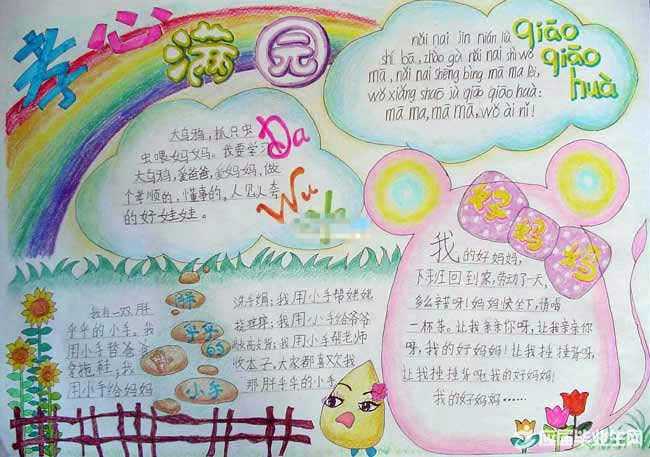 孝心满园
qiāo
qiāo
huà
nǎi nai jīn nián liù
shí bā, zhào gù nǎi nai shì wǒ
mā, nǎi nai shēng bìng mā ma lèi,
wǒ xiǎng shuō jù qiāo qiāo huà:
mā ma, mā mā, wǒ ài nǐ!
大乌鸦,抓只虫
虫喂妈妈。我要学习
大乌鸦,爱爸爸,爱妈妈,做
个孝顺的,懂事的,人见人夸
的好娃娃。
Da
Wu
好妈妈
我的好妈妈,
下班回到家,劳动了一天,
多么辛苦呀!妈妈快坐下,请喝
一杯茶。让我亲亲你呀,让我亲亲你
呀,我的好妈妈!让我捶捶背呀,
让我捶捶背呀,我的好妈妈!
我的好妈妈……
胖
乎乎
的
小手
我有一双胖
乎乎的小手。我
用小手替爸爸
拿拖鞋,我
用小手给妈妈
洗手绢;我用小手帮姥姥
挠痒痒;我用小手给爷爷
我用小手帮老师
收本子,大家都喜欢我
那胖乎乎的小手
应届毕业生网